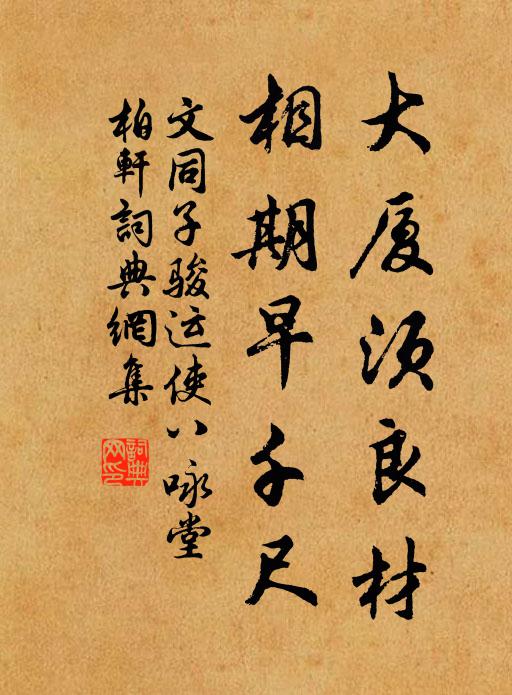 大厦须良材
相期早千尺
文同子骏运使八咏堂
柏軒詞典網集
詞典网印